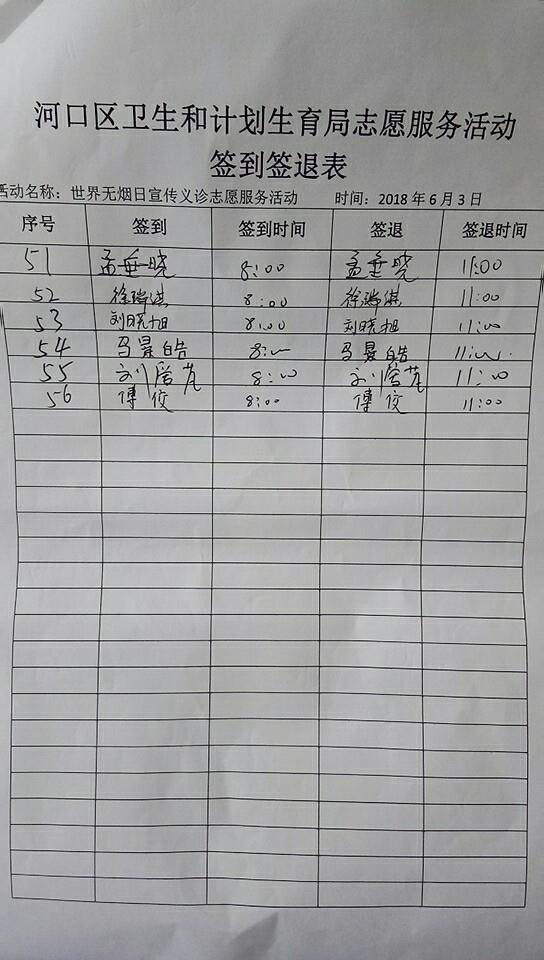 河口区卫生和计划生育局志愿服务活动
签到签退表
活动名称：世界无烟日宣传义诊志愿服务活动 时间：2018 年 6 月 3 日
序号 签到 签到时间 签退 签退时间
51 孟垂晓 8:00 孟垂晓 11:00
52 徐瑞淇 8:00 徐瑞淇 11:00
53 刘晓旭 8:00 刘晓旭 11:00
54 马景皓 8:00 马景皓 11:00
55 刘 8:00 刘 11:00
56 傅佼 8:00 傅佼 11:00